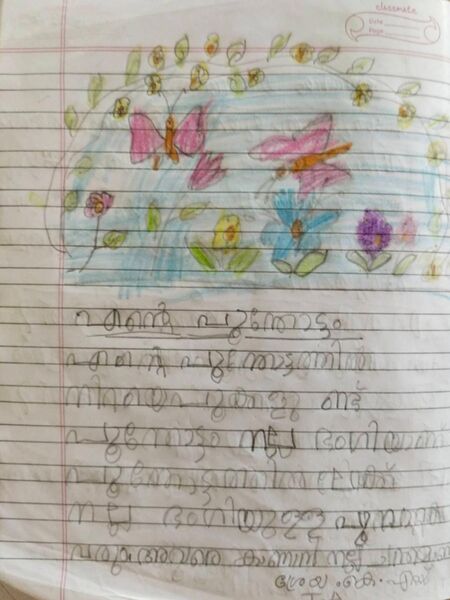 classmate
Date
Page
എന്റെ പൂന്തോട്ടം
എന്റെ പൂന്തോട്ടത്തിൽ
നിറയെ പൂക്കളുണ്ട്
പൂന്തോട്ടം നല്ല ഭംഗിയാണ്
പൂന്തോട്ടത്തിൽ
നല്ല ഭംഗിയുള്ള പൂമ്പാറ്റ
വരും അവരെ കാണാൻ നല്ല
ശ്രേയ .കെ. എസ്